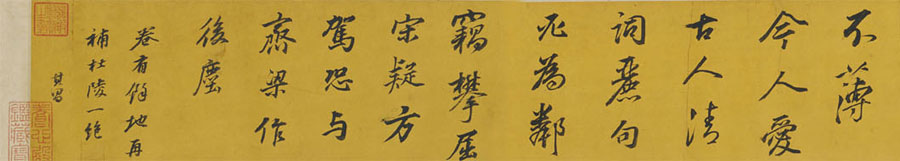 不薄
今人愛
古人清
詞麗句
必為鄰
竊攀屈
宋疑方
駕恐与
齋梁作
後塵
卷有餘地再
補杜陵一絕
其昌